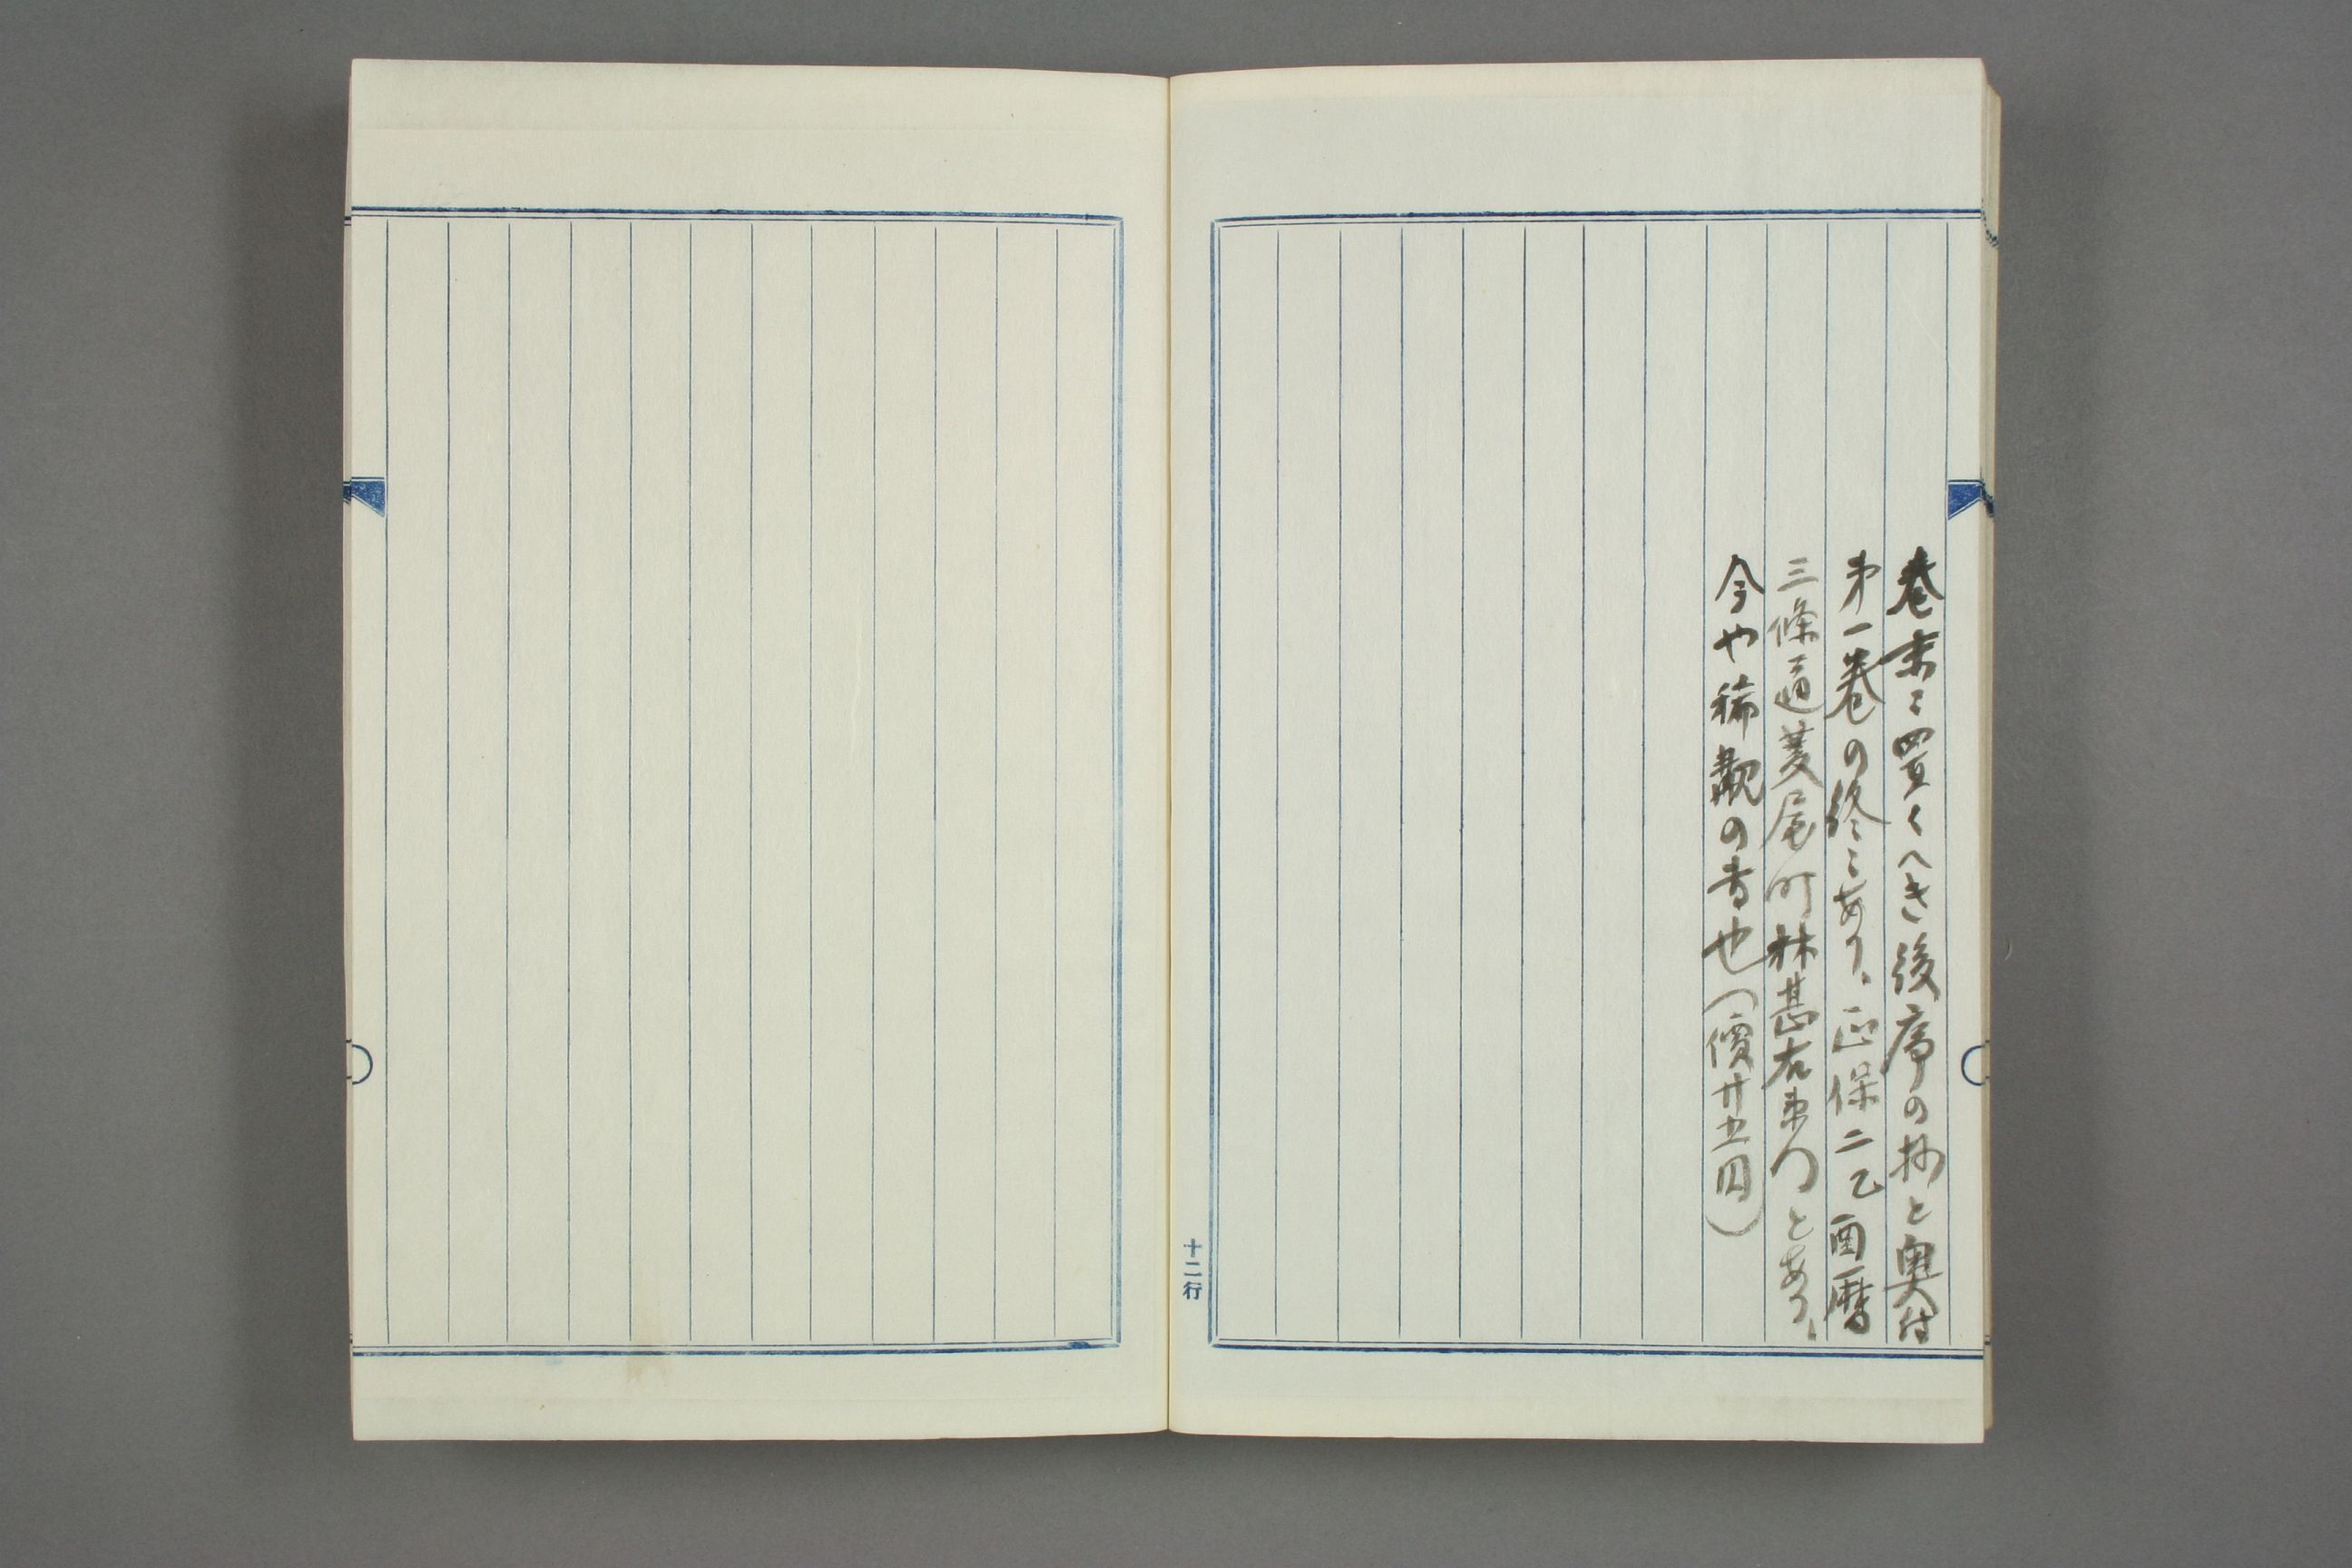 巻末ニ置くへき後序の抄と奥付
第一巻の終ニあり、正保二乙酉暦
三條通菱屋町林甚右衛門とあり、
今や稀覯の書也（價廿五円）
十二行